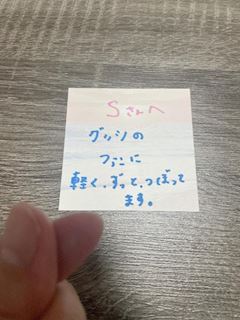 Sさんへ
グッシの
ファンに
軽く、ずっと、つぼって
ます。